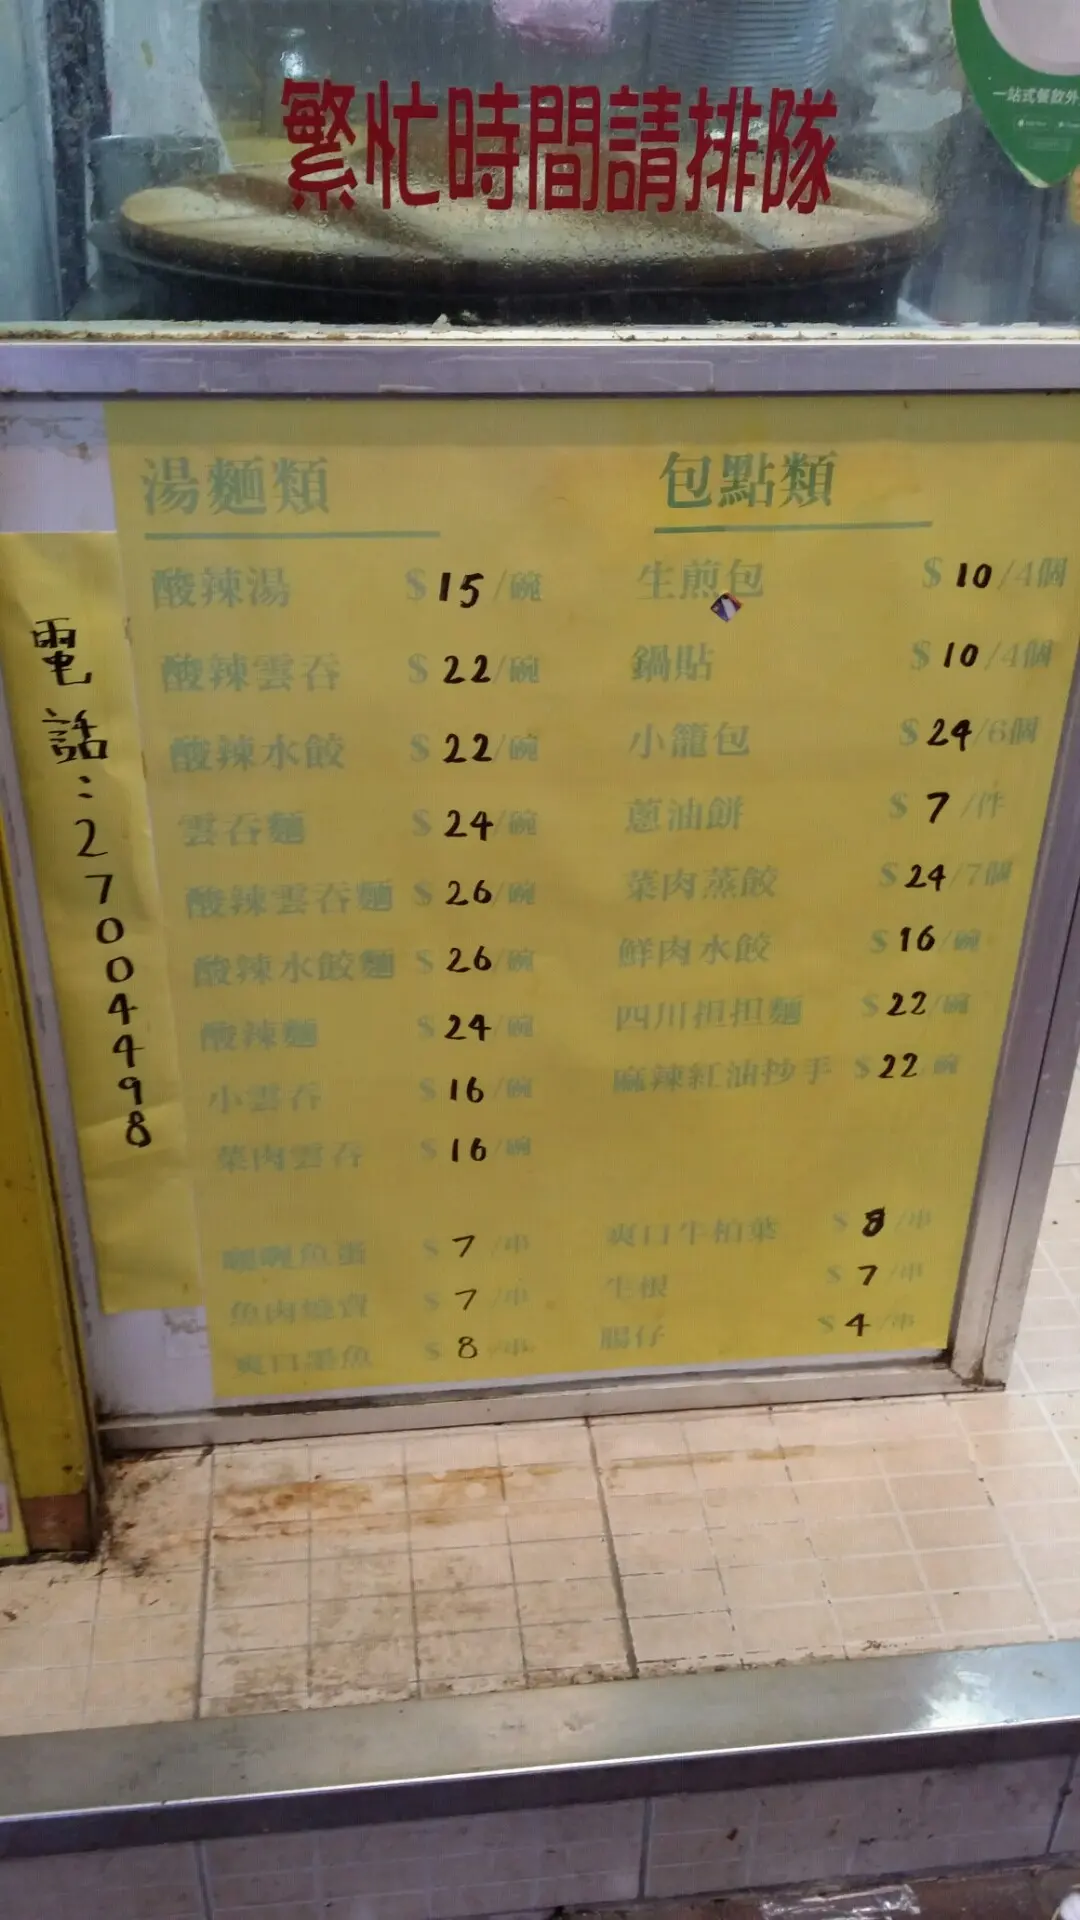 繁忙時間請排隊
一站式餐飲外
湯麵類
酸辣湯 $15/碗
酸辣雲吞 $22/碗
酸辣水餃 $22/碗
雲吞麵 $24/碗
酸辣雲吞麵 $26/碗
酸辣水餃麵 $26/碗
酸辣麵 $24/碗
小雲吞 $16/碗
菜肉雲吞 $16/碗
咖喱魚蛋 $7/串
魚肉燒賣 $7/串
爽口墨魚 $8/串
包點類
生煎包 $10/4個
鍋貼 $10/4個
小籠包 $24/6個
蔥油餅 $7/件
菜肉蒸餃 $24/7個
鮮肉水餃 $16/碗
四川担担麵 $22/碗
麻辣紅油抄手 $22/碗
爽口牛柏葉 $8/串
生根 $7/串
腸仔 $4/串
電話:27004498